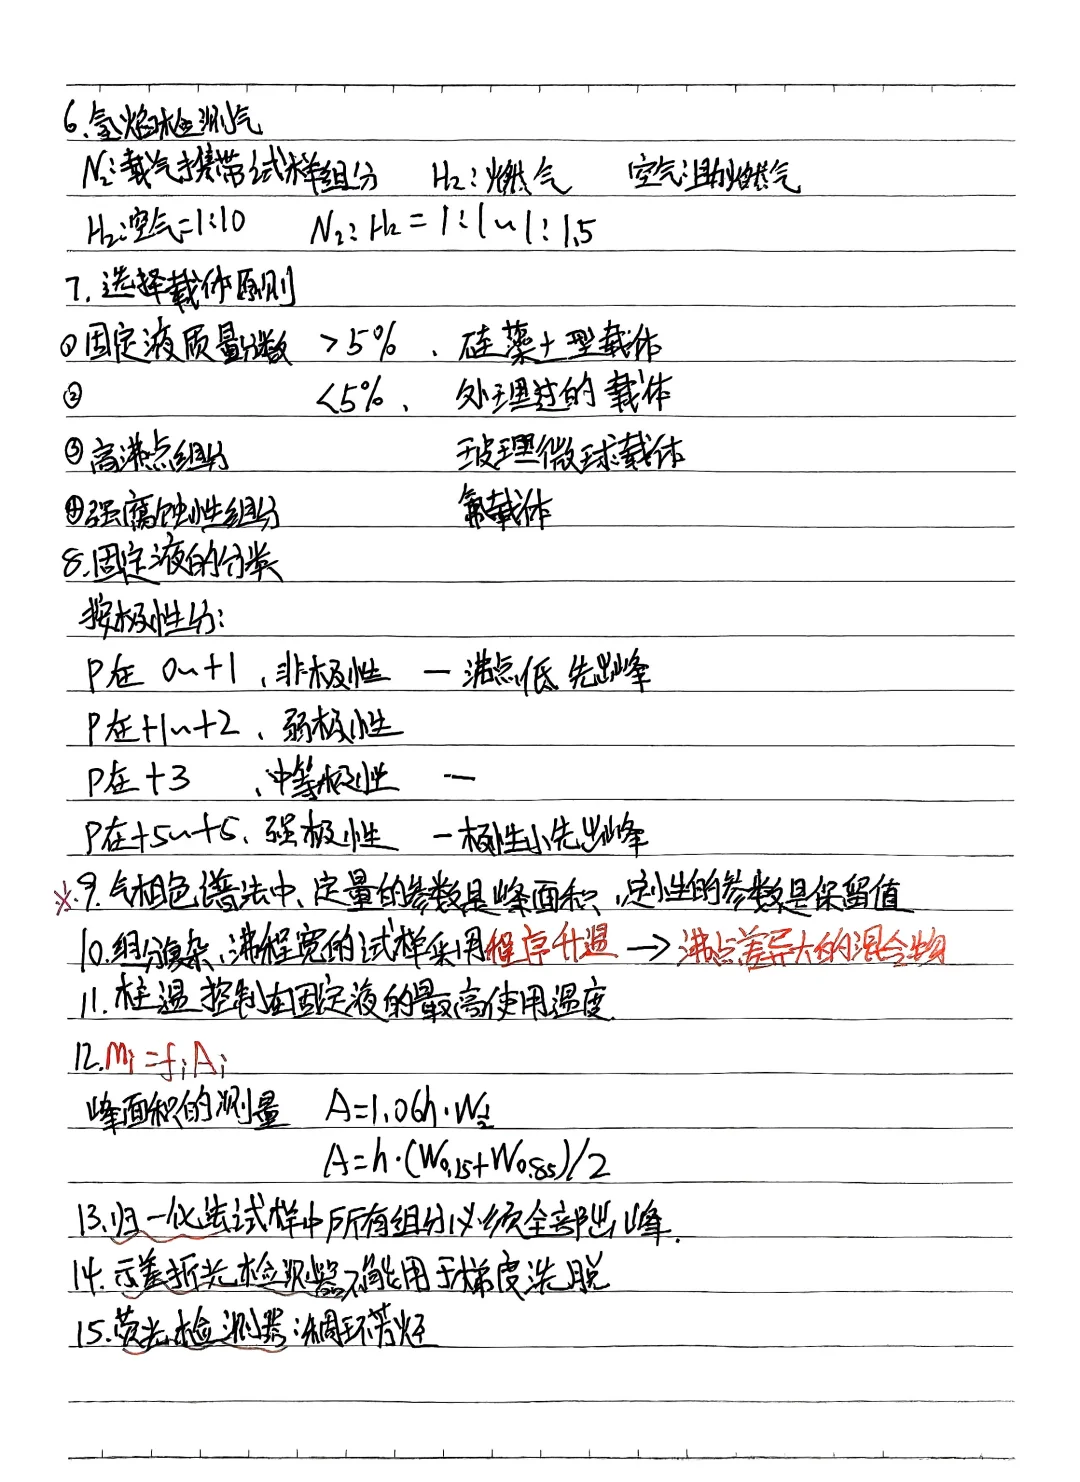 6.氢焰检测气
N₂:载气携带试样组分 H₂:燃气 空气:助燃气
H₂:空气=1:10 N₂:H₂=1:1~1:1.5
7.选择载体原则
①固定液质量分数 >5%、硅藻土型载体
② <5%、处理过的载体
③高沸点组分 玻璃微球载体
④强腐蚀性组分 氟载体
8.固定液的分类
按极性分:
P在 0~+1、非极性 — 沸点低先出峰
P在+1~+2、弱极性
P在+3 、中等极性 —
P在+5~+5、强极性 — 极性小先出峰
※9.气相色谱法中、定量的参数是峰面积,定性的参数是保留值
10.组分复杂、沸程宽的试样采用程序升温→沸点差异大的混合物
11.柱温控制在固定液的最高使用温度.
12.mi=fiAi
峰面积的测量 A=1.06h·W½
A=h·(W0.15+W0.85)/2
13.归一化法试样中所有组分必须全部出峰.
14.示差折光检测器不能用于梯度洗脱
15.荧光检测器:稠环芳烃